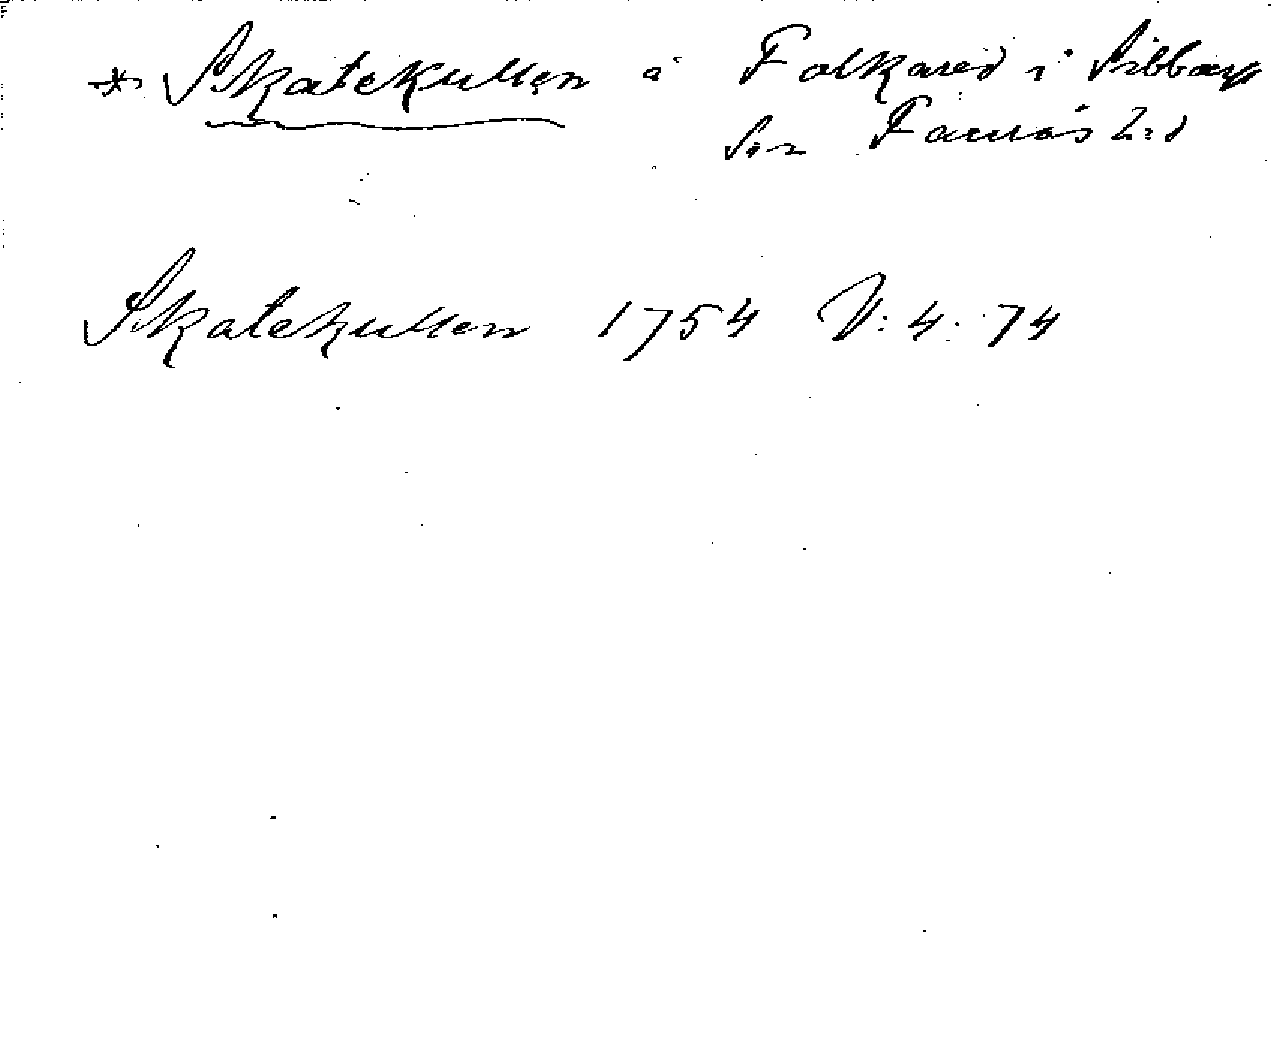 * Skatekullen å Folkared i Sibbarp
sn Faurås hd
Skatekullen 1754 V:4:74